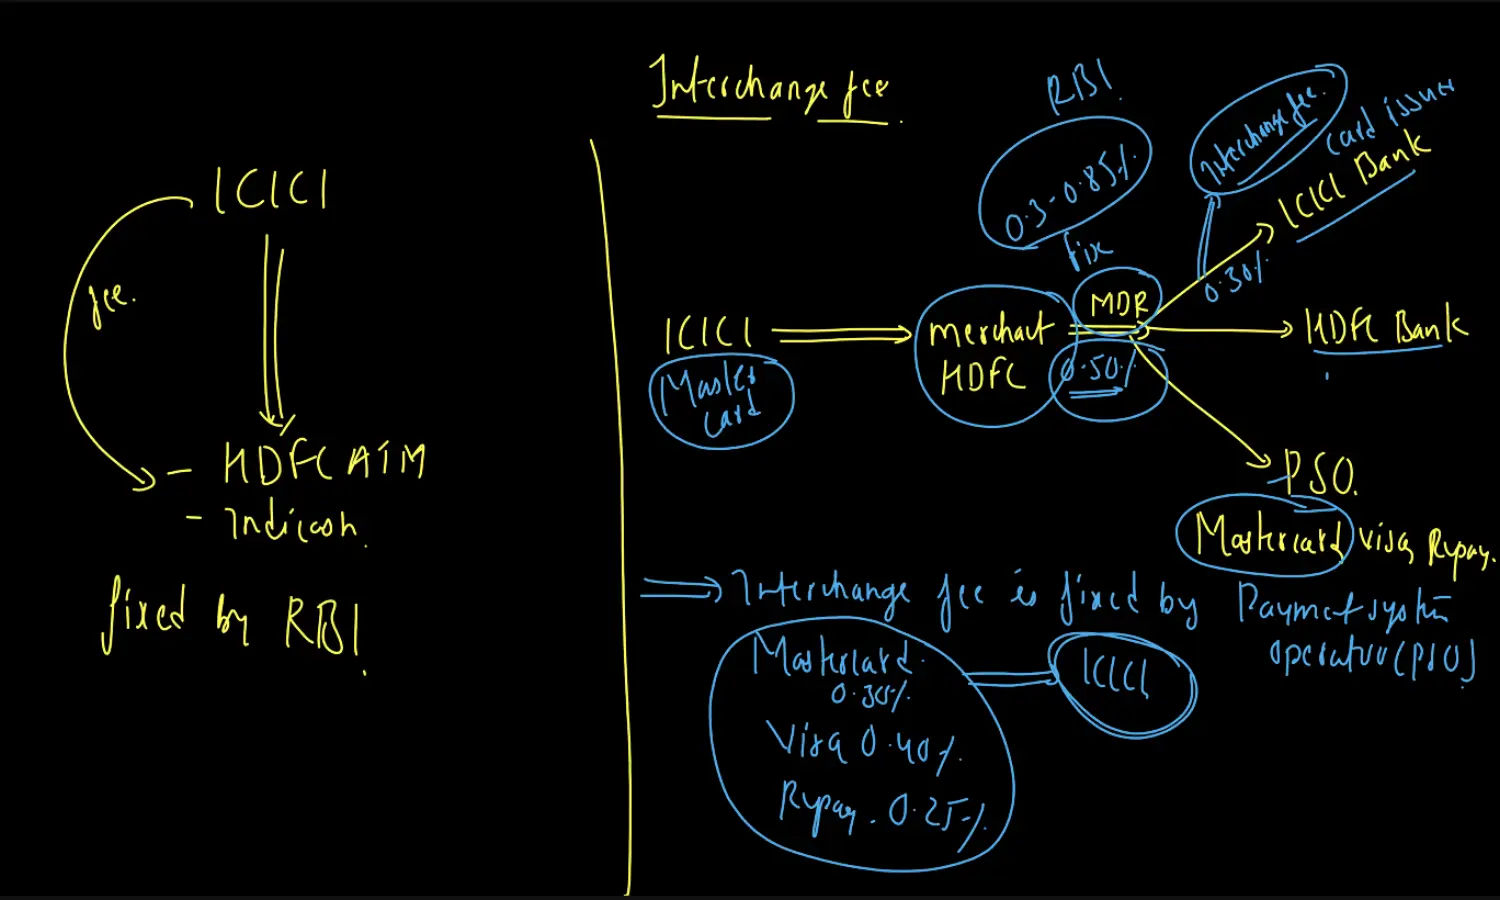 ICICI
fee.
- HDFC ATM
- Indicash.
fixed by RBI.
Interchange fee.
RBI.
0.3-0.85%
fix
Interchange fee.
card issuer
ICICI Bank
0.30%
ICICI
Master
card
merchant
HDFC
MDR
0.50%
HDFC Bank
PSO.
Mastercard Visa, Rupay.
Interchange fee is fixed by Payment system
operator (PSO)
Mastercard.
0.30%
ICICI
Visa 0.40%.
Rupay. 0.25%.